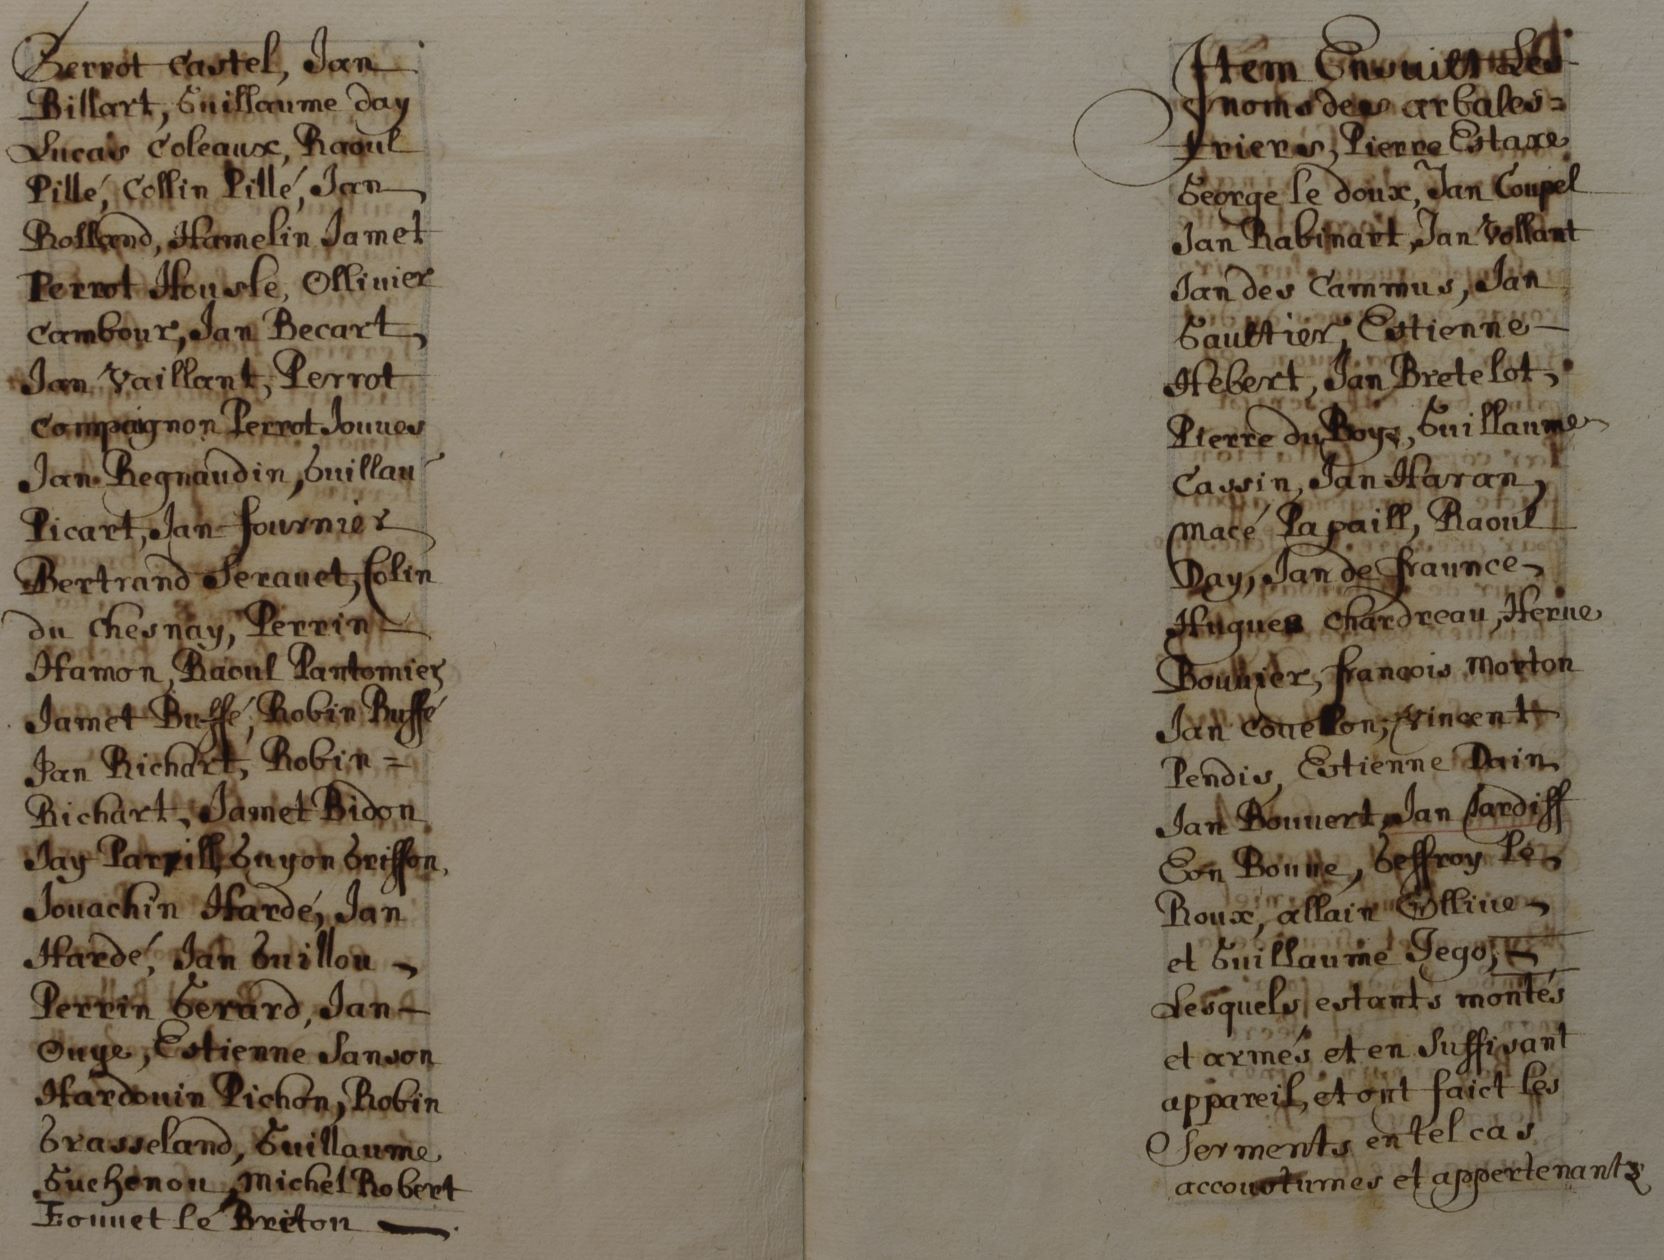 Perrot Castel, Jan
Billart, Guillaume day
Lucais Coleaux, Raoul
Pillé, Collin Pillé, Jan
Rolland, Hamelin Jamet
Perrot Housle, Ollivier
Cambour, Jan Becart,
Jan Vaillant, Perrot
Compaignon Perrot Jouues
Jan Regnaudin, Guillau
Picart, Jan fournier
Bertrand Seravet, Colin
du Chesnay, Perrin
Hamon, Raoul Pantomier,
Jamet Buffé, Robin Buffé
Jan Richart, Robin =
Richart, Jamet Bidon
Jay Guyon Griffon,
Jouachin Hardé, Jan
Hardé, Jan Guillou
Perrin Gerard, Jan
Ouye, Estienne Sanson
Hardouin Pichon, Robin
Grasseland, Guillaume
Guchenou, Michel Robert
Eonnet le Briton
Item Ensuilt Les
noms des arbales=
triers, Pierre Estaxe
George le doux, Jan Coupel
Jan Rabinart, Jan Vollant
Jan des Cammus, Jan
Gaultier, Estienne
Hebert, Jan Bretelot,
Pierre du Boys, Guillaume
Cassin, Jan Haran,
Macé Papaill, Raoul
Day, Jan de fraunce,
Hugues Chardreau, Herue
Bouuier, françois Morton
Jan Couellon, Vincent
Pendis, Estienne Dain
Jan Bouuert, Jan Jardiff
Eon Bonne, Geffroy le
Roux, allain Ollive
et Guillaume Jego,
Lesquels estants montés
et armés et en suffisant
appareil, et ont faict les
serments en tel cas
accoustumes et appertenants